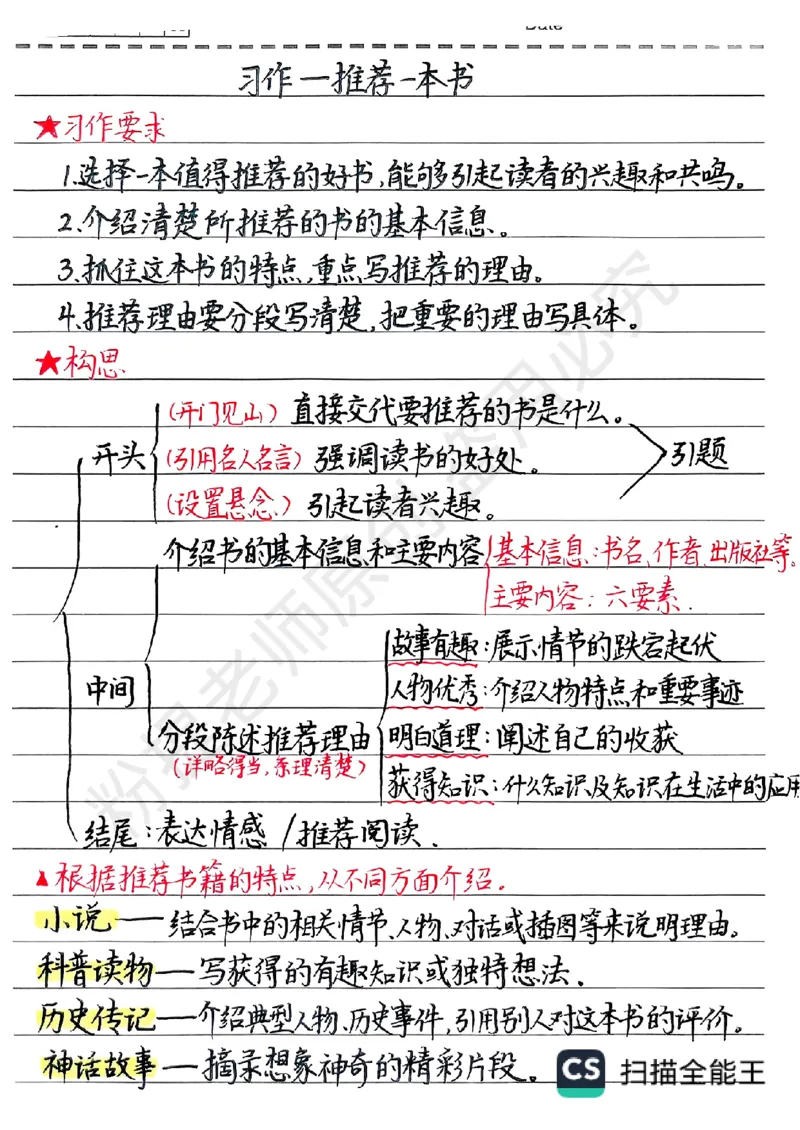 Date
习作—推荐一本书
★习作要求
1.选择一本值得推荐的好书,能够引起读者的兴趣和共鸣。
2.介绍清楚所推荐的书的基本信息。
3.抓住这本书的特点,重点写推荐的理由。
4.推荐理由要分段写清楚,把重要的理由写具体。
★构思
(开门见山) 直接交代要推荐的书是什么。
开头 (引用名人名言) 强调读书的好处。 引题
(设置悬念) 引起读者兴趣。
介绍书的基本信息和主要内容 基本信息:书名、作者、出版社等。
主要内容:六要素.
故事有趣:展示情节的跌宕起伏
中间 人物优秀:介绍人物特点和重要事迹
分段陈述推荐理由 明白道理:阐述自己的收获
(详略得当,条理清楚)
获得知识:什么知识及知识在生活中的应用
结尾:表达情感/推荐阅读.
▲根据推荐书籍的特点,从不同方面介绍.
小说——结合书中的相关情节、人物、对话或插图等来说明理由。
科普读物—写获得的有趣知识或独特想法.
历史传记—介绍典型人物、历史事件,引用别人对这本书的评价。
神话故事—摘录想象神奇的精彩片段。
CS 扫描全能王